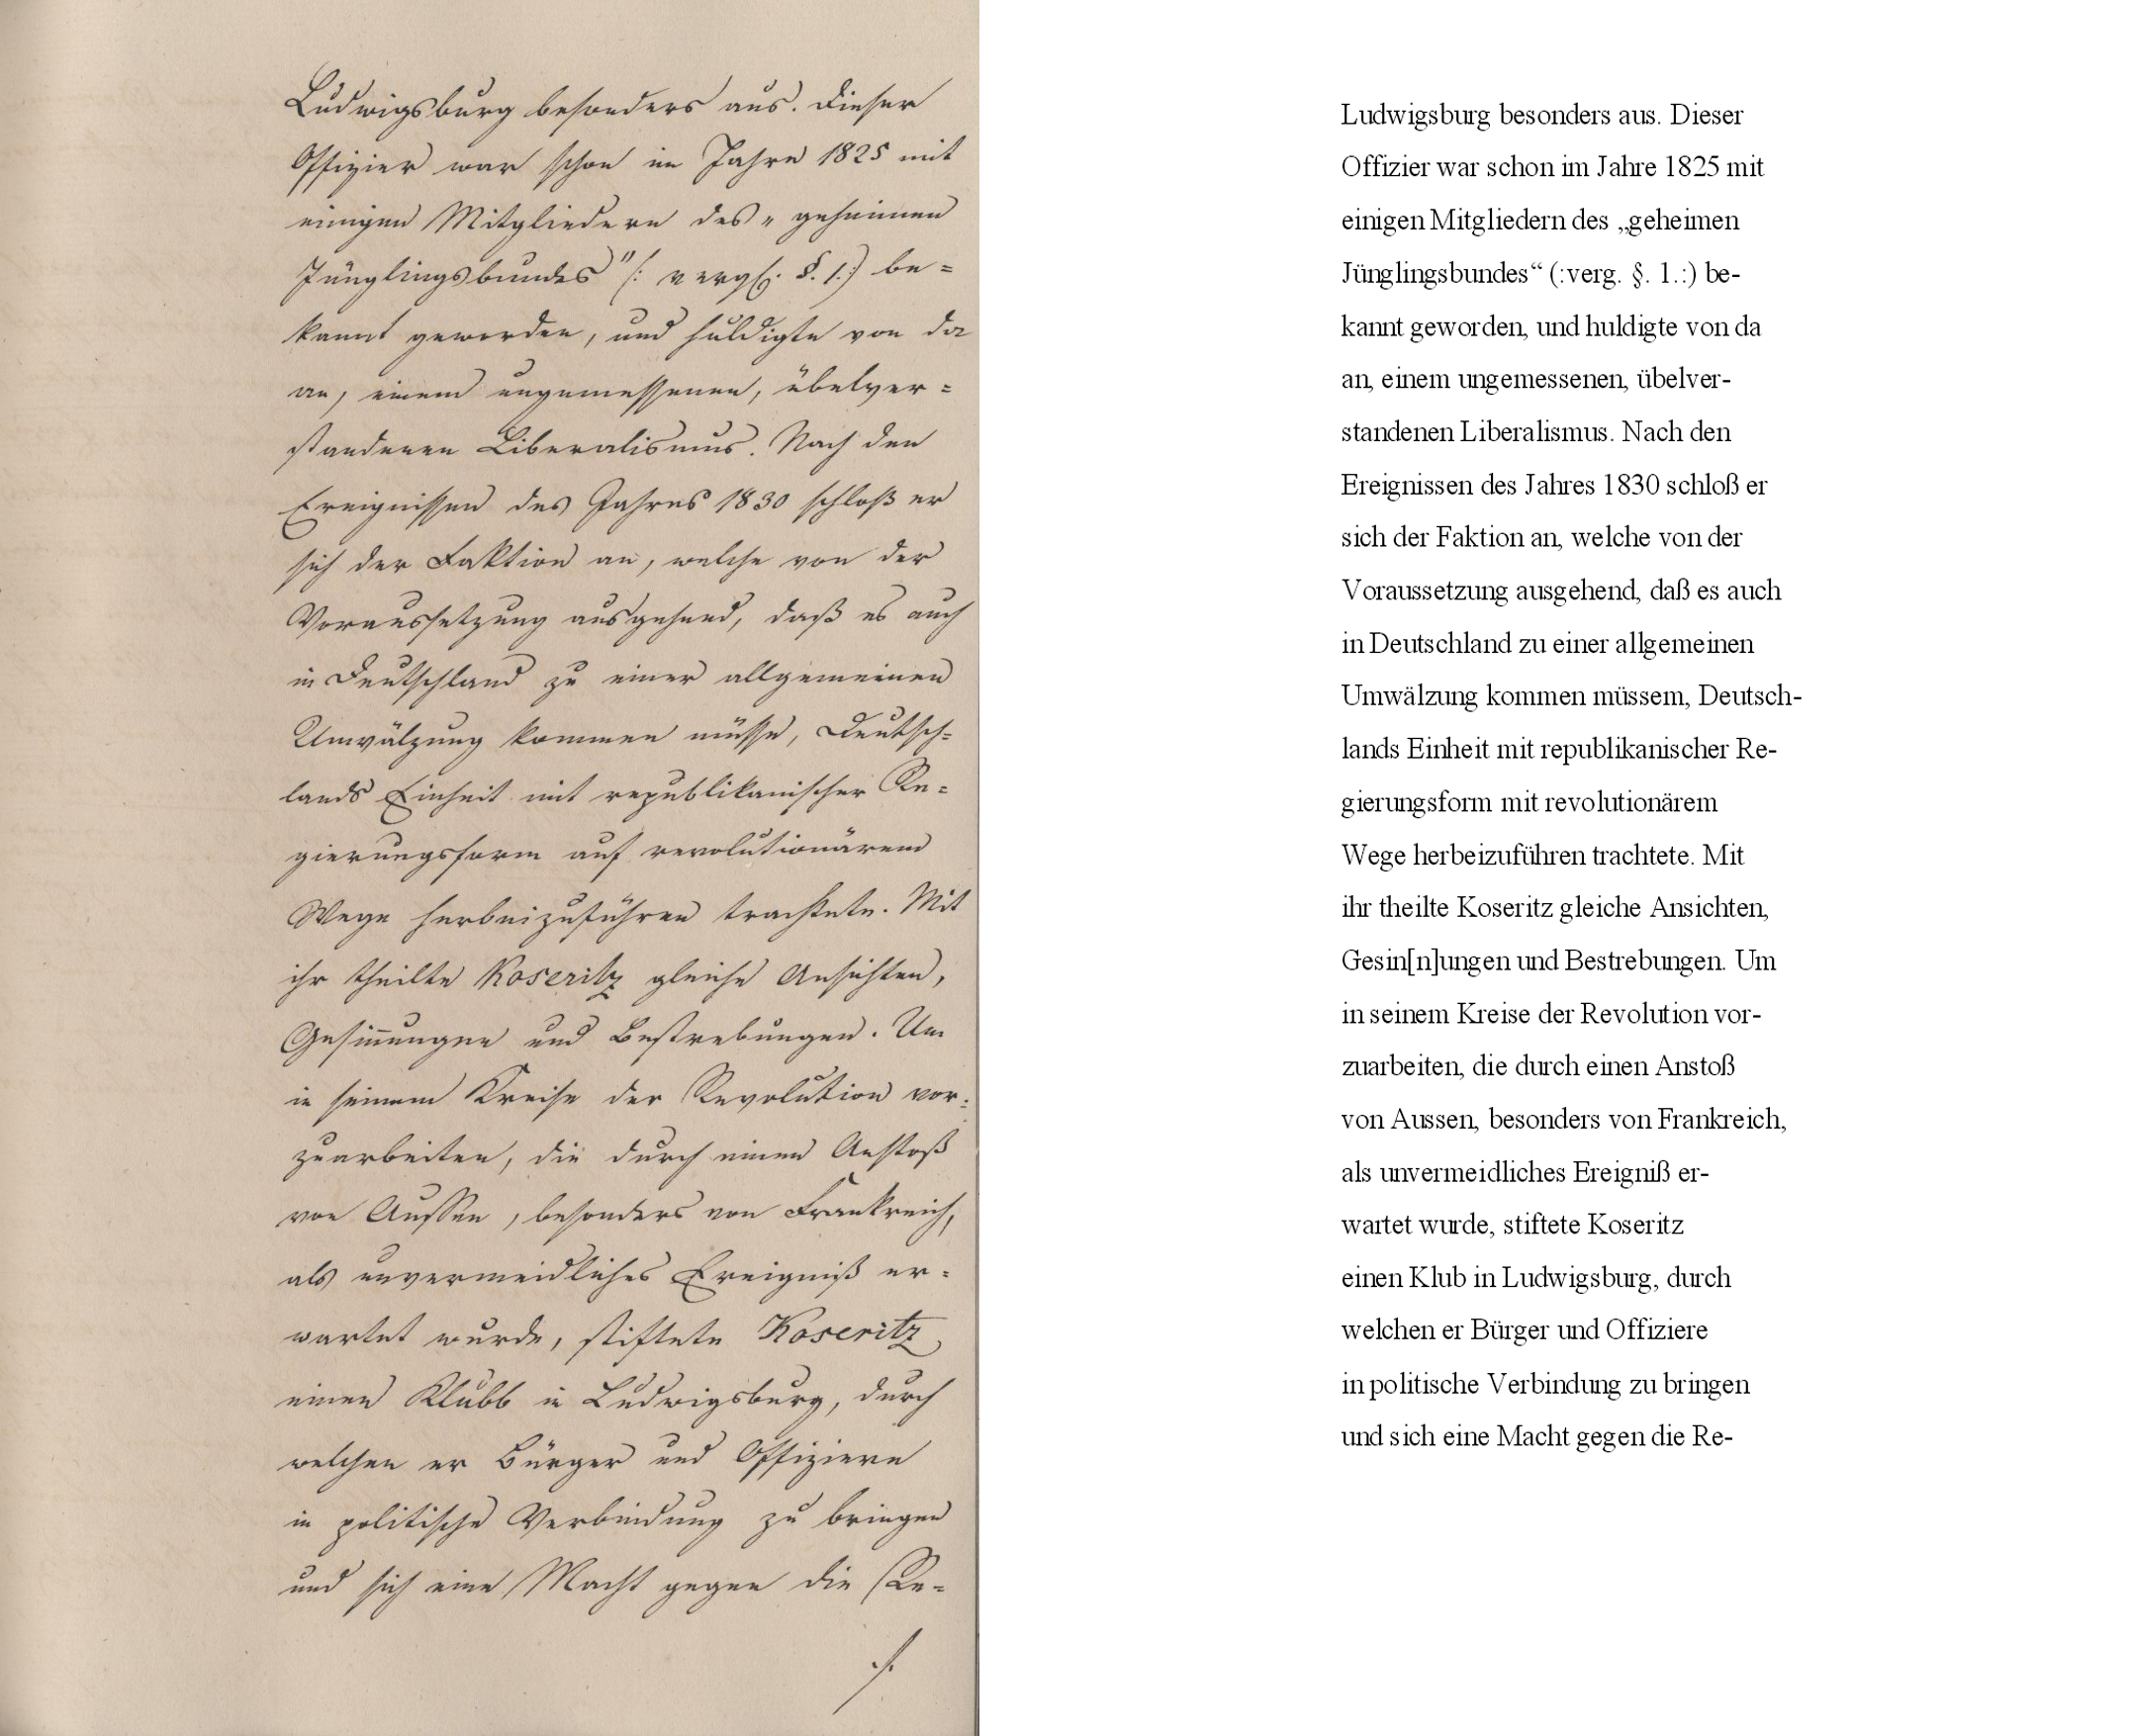 Ludwigsburg besonders aus. Dieser
Offizier war schon im Jahre 1825 mit
einigen Mitgliedern des „geheimen
Jünglingsbundes" (: vergl. §. 1.:) be=
kannt geworden, und huldigte von da
an, einem ungemessenen, übelver=
standenen Liberalismus. Nach den
Ereignissen des Jahres 1830 schloß er
sich der Faktion an, welche von der
Voraussetzung ausgehend, daß es auch
in Deutschland zu einer allgemeinen
Umwälzung kommen müsse, Deutsch=
lands Einheit mit republikanischer Re=
gierungsform auf revolutionärem
Wege herbeizuführen trachtete. Mit
ihr theilte Koseritz gleiche Ansichten,
Gesin̄ungen und Bestrebungen. Um
in seinem Kreise der Revolution vor=
zuarbeiten, die durch einen Anstoß
von Aussen, besonders von Frankreich,
als unvermeidliches Ereigniß er=
wartet wurde, stiftete Koseritz
einen Klubb in Ludwigsburg, durch
welchen er Bürger und Offiziere
in politische Verbindung zu bringen
und sich eine Macht gegen die Re=
./.
Ludwigsburg besonders aus. Dieser
Offizier war schon im Jahre 1825 mit
einigen Mitgliedern des „geheimen
Jünglingsbundes“ (:verg. §. 1.:) be-
kannt geworden, und huldigte von da
an, einem ungemessenen, übelver-
standenen Liberalismus. Nach den
Ereignissen des Jahres 1830 schloß er
sich der Faktion an, welche von der
Voraussetzung ausgehend, daß es auch
in Deutschland zu einer allgemeinen
Umwälzung kommen müssem, Deutsch-
lands Einheit mit republikanischer Re-
gierungsform mit revolutionärem
Wege herbeizuführen trachtete. Mit
ihr theilte Koseritz gleiche Ansichten,
Gesin[n]ungen und Bestrebungen. Um
in seinem Kreise der Revolution vor-
zuarbeiten, die durch einen Anstoß
von Aussen, besonders von Frankreich,
als unvermeidliches Ereigniß er-
wartet wurde, stiftete Koseritz
einen Klub in Ludwigsburg, durch
welchen er Bürger und Offiziere
in politische Verbindung zu bringen
und sich eine Macht gegen die Re-